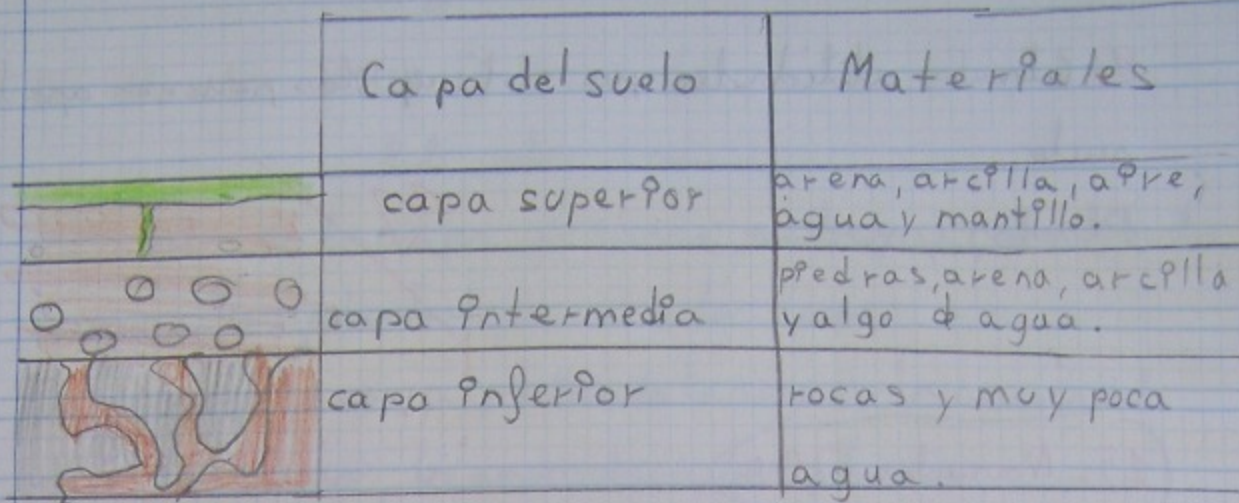 Capa del suelo
Materiales
capa superior
arena, arcilla, aire,
agua y mantillo.
capa intermedia
piedras, arena, arcilla
y algo de agua.
capa inferior
rocas y muy poca
agua.